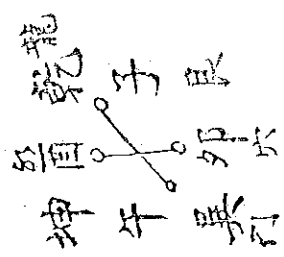 龍
乾 子 艮
酉 卯
坤 午 巽